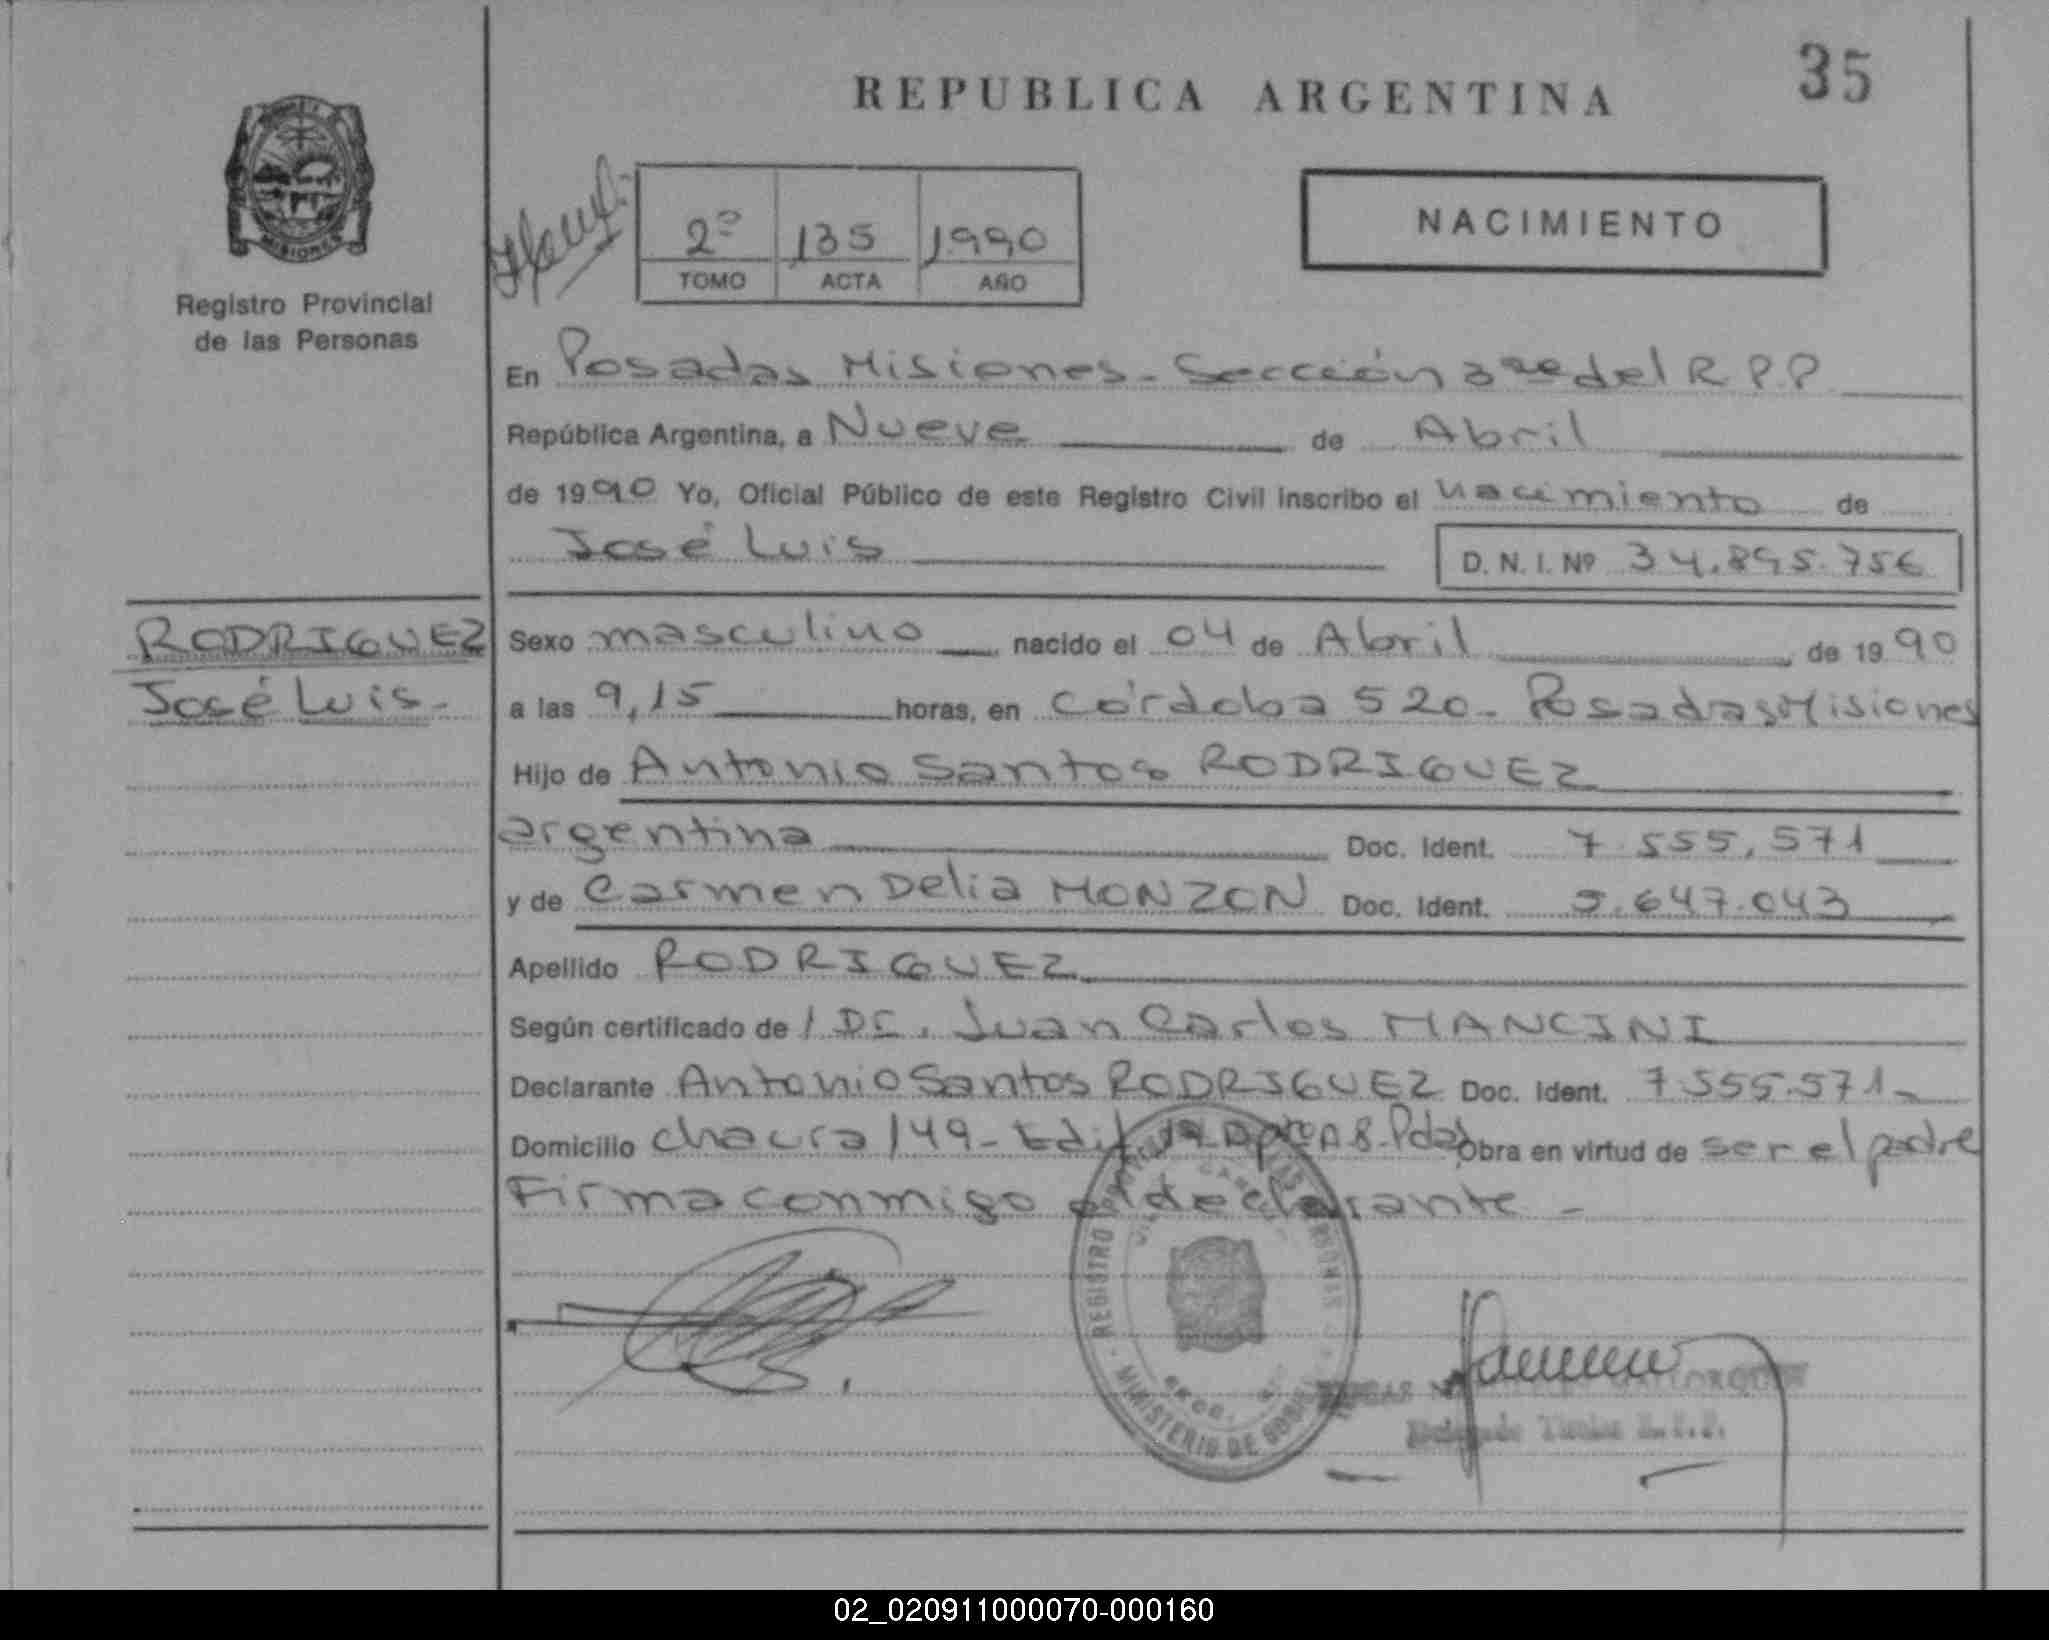 35
REPUBLICA ARGENTINA
MISIONES
Registro Provincial
de las Personas
2º 135 1990
TOMO ACTA AÑO
NACIMIENTO
En Posadas Misiones - Sección 3ra del R P P
República Argentina, a Nueve de Abril
de 1990 Yo, Oficial Público de este Registro Civil inscribo el nacimiento de
José Luis D. N. I. Nº 34.895.756
RODRIGUEZ
José Luis -
Sexo masculino nacido el 04 de Abril de 1990
a las 9,15 horas, en Córdoba 520 - Posadas Misiones
Hijo de Antonio Santos RODRIGUEZ
argentina Doc. Ident. 7.555.571
y de Carmen Delia MONZON Doc. Ident. 5.647.043
Apellido RODRIGUEZ
Según certificado de Juan Carlos MANCINI
Declarante Antonio Santos RODRIGUEZ Doc. Ident. 7.555.571 -
Domicilio chacra 149 - Edif. Dpto A 8 - Pdas Obra en virtud de ser el padre
Firma conmigo el declarante -
REGISTRO DE LAS PERSONAS
MINISTERIO DE
Titular R.P.P.
02_020911000070-000160